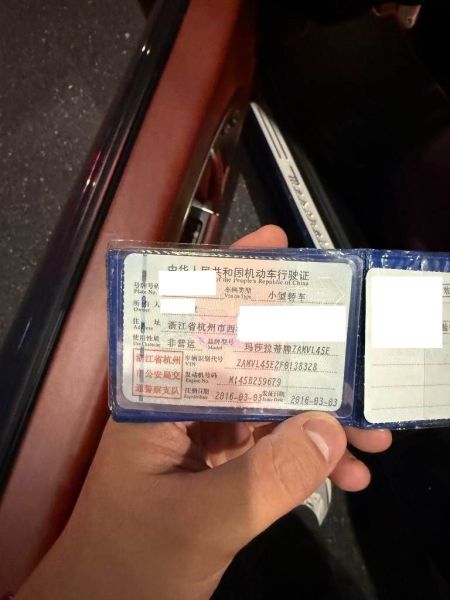 中华人民共和国机动车行驶证
of the People's Republic of China
号牌号码
Plate No.
车辆类型
Vehicle Type
小型轿车
所有人
Owner
住址
Address
浙江省杭州市西
使用性质
Use Character
非营运
品牌型号
Model
玛莎拉蒂牌ZAMVL45E
浙江省杭州
市公安局交
通警察支队
车辆识别代号
VIN
ZAMVL45E2FB138328
发动机号码
Engine No.
M145B259679
注册日期
Register Date
2016-03-03
发证日期
Issue Date
2016-03-03